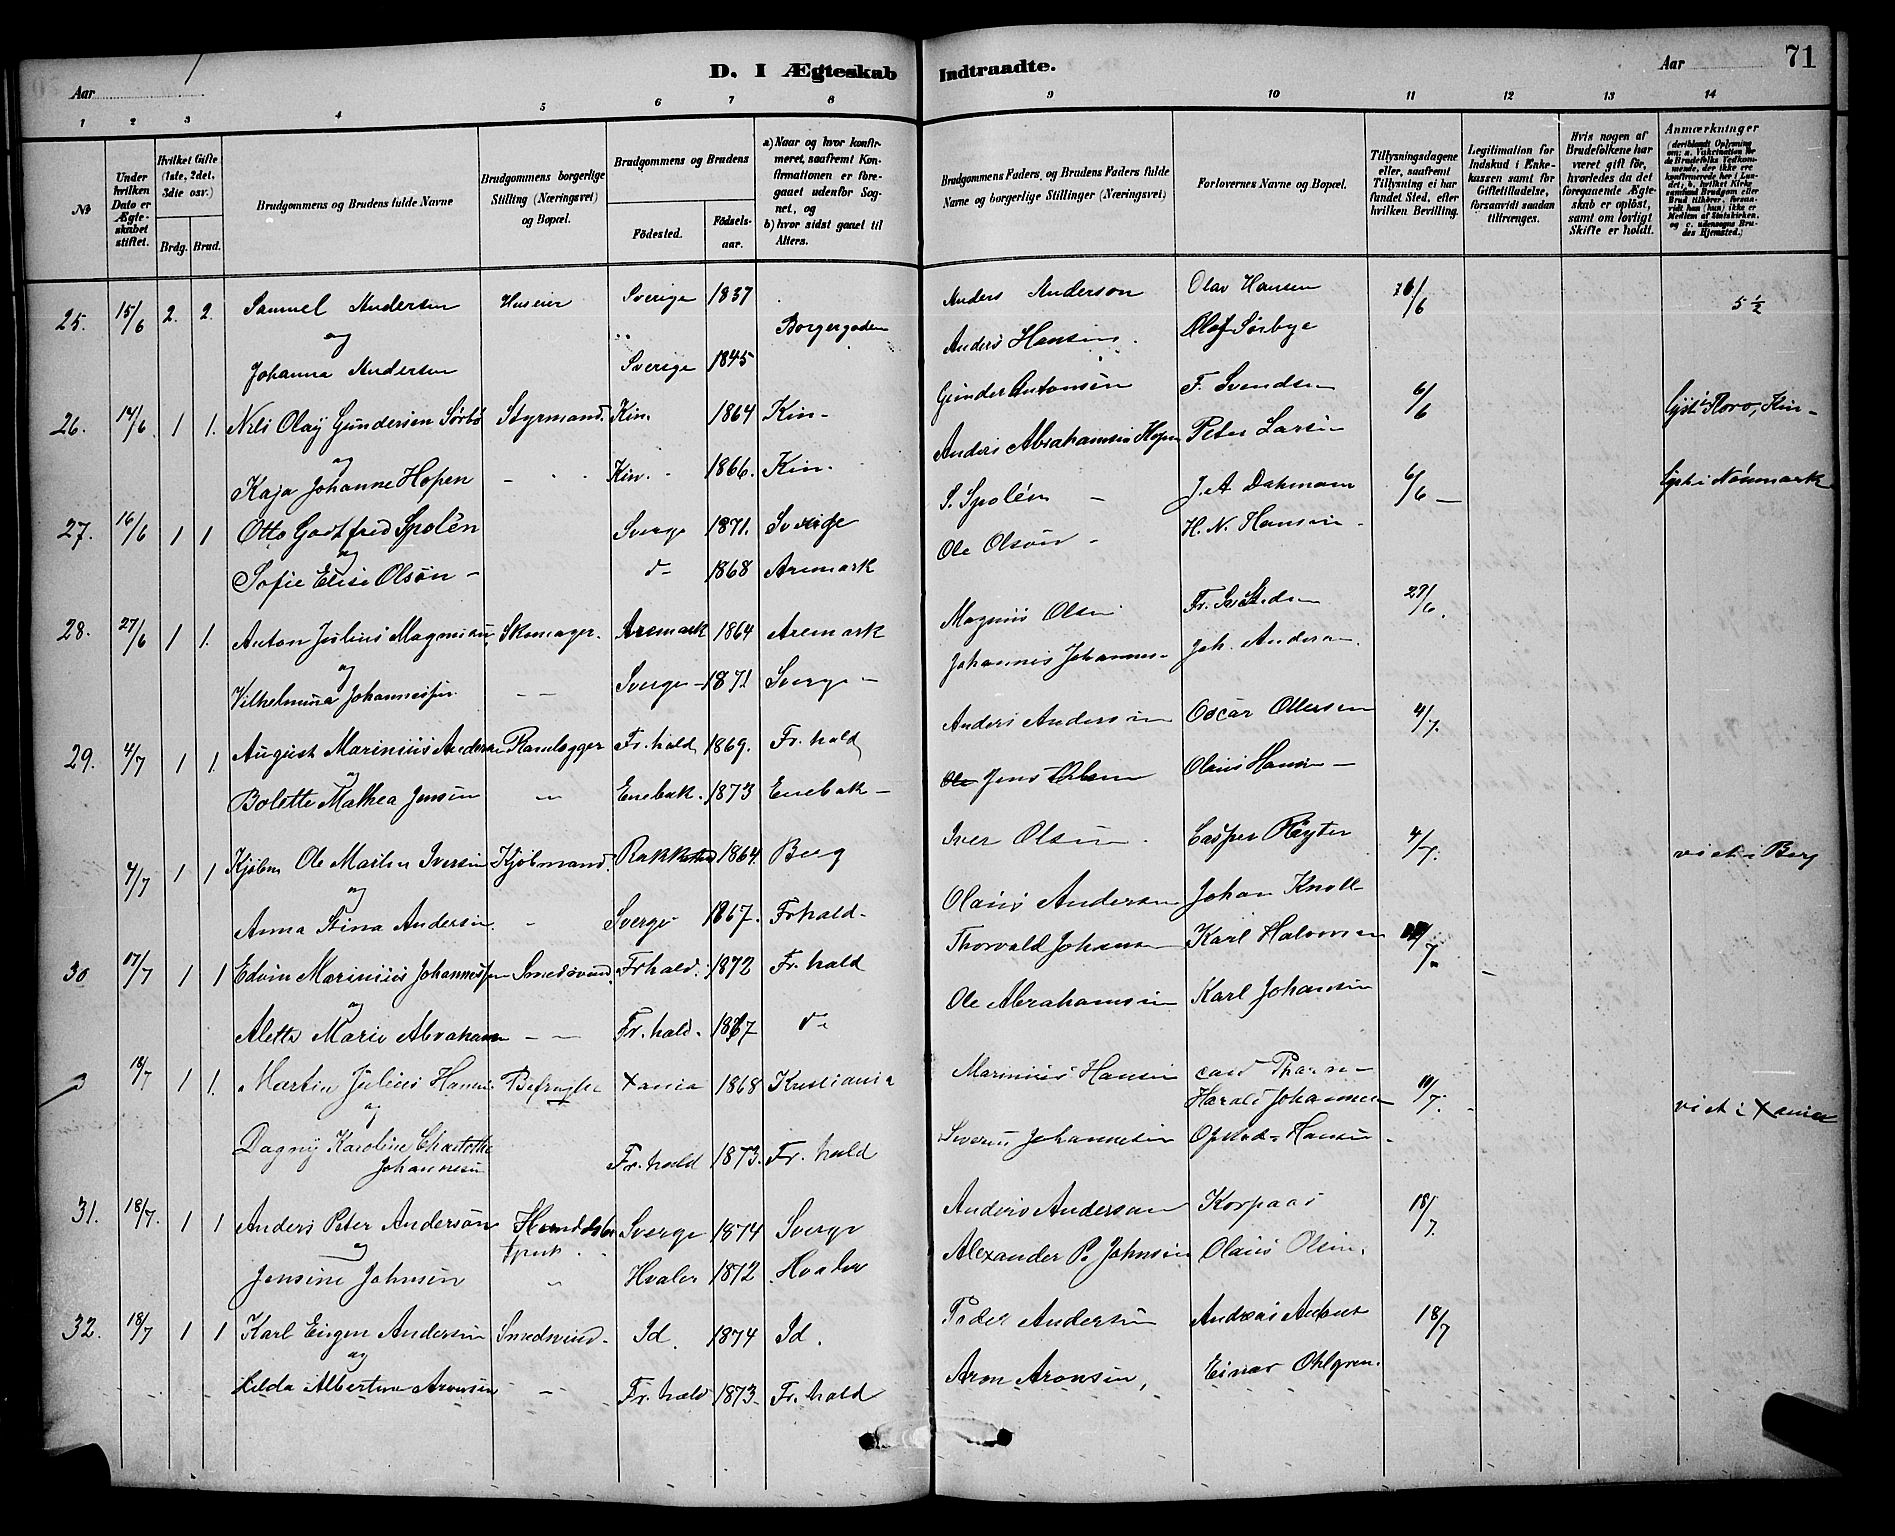 D. I Ægteskab Indtraadte.
71
Aar
Aar
1 2 3 4 5 6 7 8 9 10 11 12 13 14
№
Under hvilken Dato er Ægteskabet stiftet.
Hvilket Gifte (1ste, 2det, 3die osv.)
Brdg. Brud.
Brudgommens og Brudens fulde Navne
Brudgommens borgerlige Stilling (Næringsvei) og Bopæl.
Brudgommens og Brudens
Födested.
Födsels-aar.
a) Naar og hvor konfirmeret, saafremt Konfirmationen er foregaaet udenfor Sognet, og
b) hvor sidst gaaet til Alters.
Brudgommens Faders og Brudens Faders fulde Navne og borgerlige Stillinger (Næringsvei)
Forlovernes Navne og Bopæl.
Tillysningsdagene eller, saafremt Tillysning ei har fundet Sted, efter hvilken Bevilling.
Legitimation for Indskud i Enkekassen samt for Giftetilladelse, forsaavidt saadan tiltrænges.
Hvis nogen af Brudefolkene har været gift för, hvorledes da det foregaaende Ægteskab er oplöst, samt om lovligt Skifte er holdt.
Anmærkninger
25. 15/6 2. 2. Samuel Andersen Huseier Sverige 1837 Anders Anderson Olav Hansen /6 5 1/2
og Borgergaden
Johanna Andersen Sverige 1845 Anders Hansen Olaf Sørbye
26. 14/6 1 1. Nils Olay Gundersen Sørbø Styrmand. Kin. 1864 Kin- Gunder Antonsen F. Svendsen 6/6 Gift i Florø, Kin-
og
Kaja Johanne Hopen Kin. 1866. Kin. Anders Abrahamsen Hopen Peter Larsen
27. 16/6 1 1 Otto Godtfred Spolén Sverge 1871. Sverige S. Spolén J. A Dahmann 6/6 Gift i Nössmark
og
Sofie Elise Olsön d- 1868 Aremark Ole Olsøn H. N. Hansen
28. 27/6 1 1. Anton Julius Magnusen Skomager. Aremark 1864 Aremark Magnus Olsen 27/6.
og
Vilhelmina Johannessen Sverge 1871 Sverge Johannes Johannes- Joh. Andersen
29. 4/7 1 1. August Marinius Andersen Fr. hald 1869. Fr. hald Anders Andersen Oscar Ottersen 4/7.
og
Bolette Mathea Jensen Enebak. 1873 Enebak Jens Olsen Olaus Hansen
4/7 1 1 Kjöbm Ole Martin Iversen Kjöbmand. Rakkestad 1864. Berg Iver Olsen Casper Røyter 4/7. viet i Berg
og
Anna Stina Andersen. Sverge 1867. Frhald- Olaus Andersen Johan Knoll
30 17/7 1 1 Edvin Marinius Johannessen Smedsvend. Frhald. 1872 Fr. hald Thorvald Johansen Karl Halvorsen /7.
og
Alette Marie Abraham Fr. hald. 1867 d- Ole Abrahamsen Karl Johansen
18/7 1 1. Martin Julius Hansen Befragter Xania 1868 Kristiania Marinius Hansen 10/7. viet i Xania
og Harald Johannesen
Dagny Karoline Charlotte Johannesen Fr. hald 1873. Fr. hald Severin Johannesen Opstad-Hansen
31. 18/7. 1 1 Anders Peter Andersön Sverge 1874 Sverge Anders Anderson Korpaas 18/7.
og
Jensine Johnsen Hvaler 1872 Hvaler Alexander P. Johnsen Olaus Olsen.
32. 18/7 1 1 Karl Eugen Andersen Smedsvend. Id. 1874 Id. Peder Andersen 18/7
og
Hilda Albertine Aronsen Fr. hald 1873. Fr. hald Aron Aronsen, Einar Ohlgren.